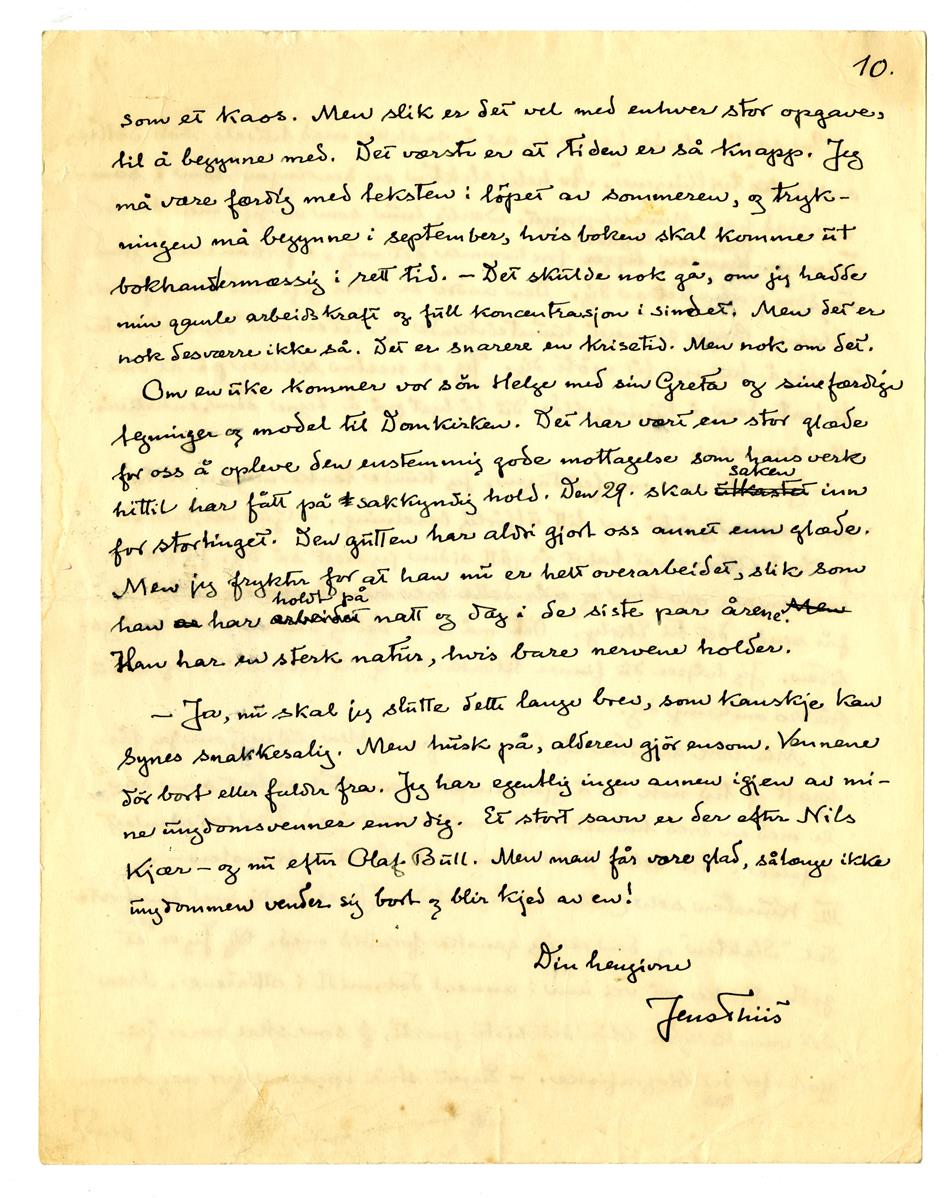 10.
som et kaos. Men slik er det vel med enhver stor opgave,
til å begynne med. Det værste er at tiden er så knapp. Jeg
må være færdig med teksten i löpet av sommeren, og tryk-
ningen må begynne i september, hvis boken skal komme ut
bokhandlermæssig i rett tid. – Det skulde nok gå, om jeg hadde
min gamle arbeidskraft og full koncentrasjon i sindet. Men det er
nok desværre ikke så. Det er snarere en krisetid. Men nok om det.
Om en uke kommer vor sön Helge med sin Greta og sine færdige
tegninger og model til Domkirken. Det har vært en stor glæde
for oss å opleve den enstemmig gode mottagelse som hans verk
saken
hittil har fått på sakkyndig hold. Den 29. skal utkastet inn
for stortinget. Den gutten har aldri gjort oss annet enn glæde.
Men jeg frykter for at han nu er helt overarbeidet, slik som
holdt på
han har arbeidet natt og dag i de siste par årene. Men
Han har en sterk natur, hvis bare nervene holder.
– Ja, nu skal jeg slutte dette lange brev, som kanskje kan
synes snakkesalig. Men husk på, alderen gjör ensom. Vennene
dör bort eller falder fra. Jeg har egentlig ingen annen igjen av mi-
ne ungdomsvenner enn dig. Et stort savn er der efter Nils
Kjær – og nu efter Olaf Bull. Men man får være glad, sålænge ikke
ungdommen vender sig bort og blir kjed av en!
Din hengivne
Jens Thiis